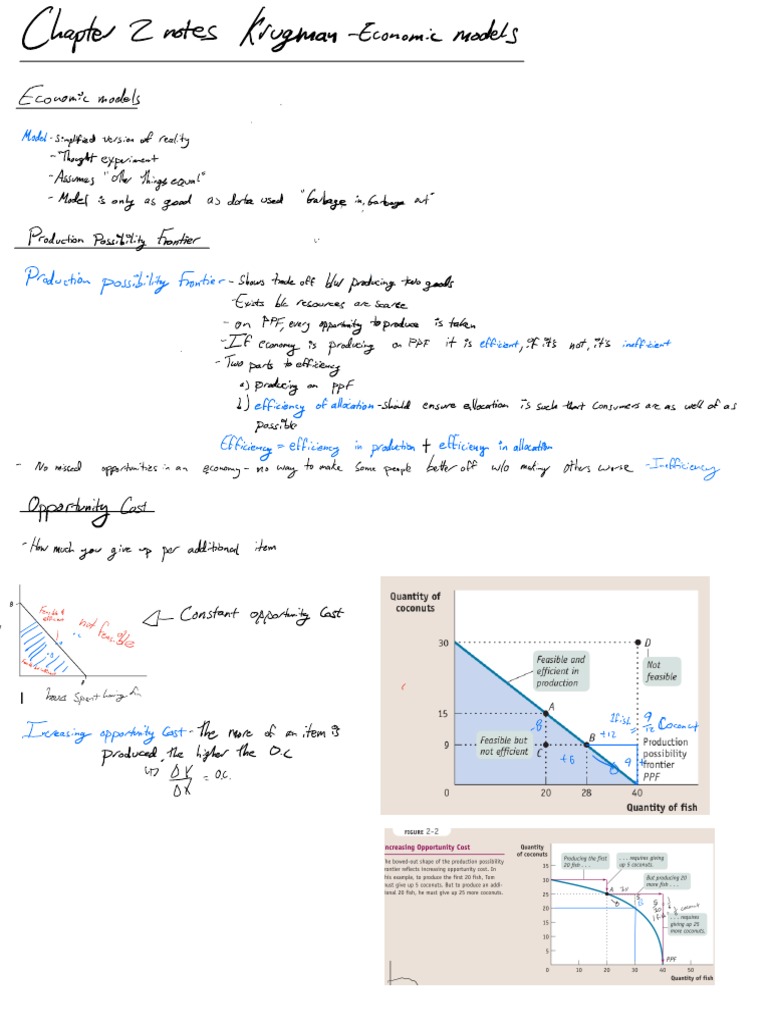 Chapter 2 notes Krugman - Economic models
Economic models
Model - simplified version of reality
- Thought experiment
- Assumes "other things equal"
- Model is only as good as data used "Garbage in, Garbage out"
Production Possibility Frontier
Production possibility Frontier - Shows trade off b/w producing two goods
- Exists b/c resources are scarce
- on PPF, every opportunity to produce is taken
- If economy is producing on PPF it is efficient, if it's not, it's inefficient
- Two parts to efficiency
a) producing on ppf
b) efficiency of allocation - should ensure allocation is such that consumers are as well of as
possible
Efficiency = efficiency in production + efficiency in allocation
- No missed opportunities in an economy - no way to make some people better off w/o making others worse - Inefficiency
Opportunity Cost
- How much you give up per additional item
Constant opportunity Cost
not feasible
Feasible &
hours spent
Increasing opportunity Cost - The more of an item is
produced, the higher the O.C
ΔY
ΔX
= O.C.
Quantity of
coconuts
30
15
9
0
20
28
40
Quantity of fish
Feasible and
efficient in
production
Feasible but
not efficient
A
B
C
D
Not
feasible
Production
possibility
frontier
PPF
1 fish = 9/12 Coconut
+12
+6
9
FIGURE 2-2
ncreasing Opportunity Cost
he bowed-out shape of the production possibility
rontier reflects increasing opportunity cost. In
his example, to produce the first 20 fish, Tom
ust give up 5 coconuts. But to produce an addi-
ional 20 fish, he must give up 25 more coconuts.
Quantity
of coconuts
35
30
25
20
15
10
5
0
10
20
30
40
50
Quantity of fish
Producing the first
20 fish . . .
. . . requires giving
up 5 coconuts.
But producing 20
more fish . . .
. . . requires
giving up 25
more coconuts.
A
PPF